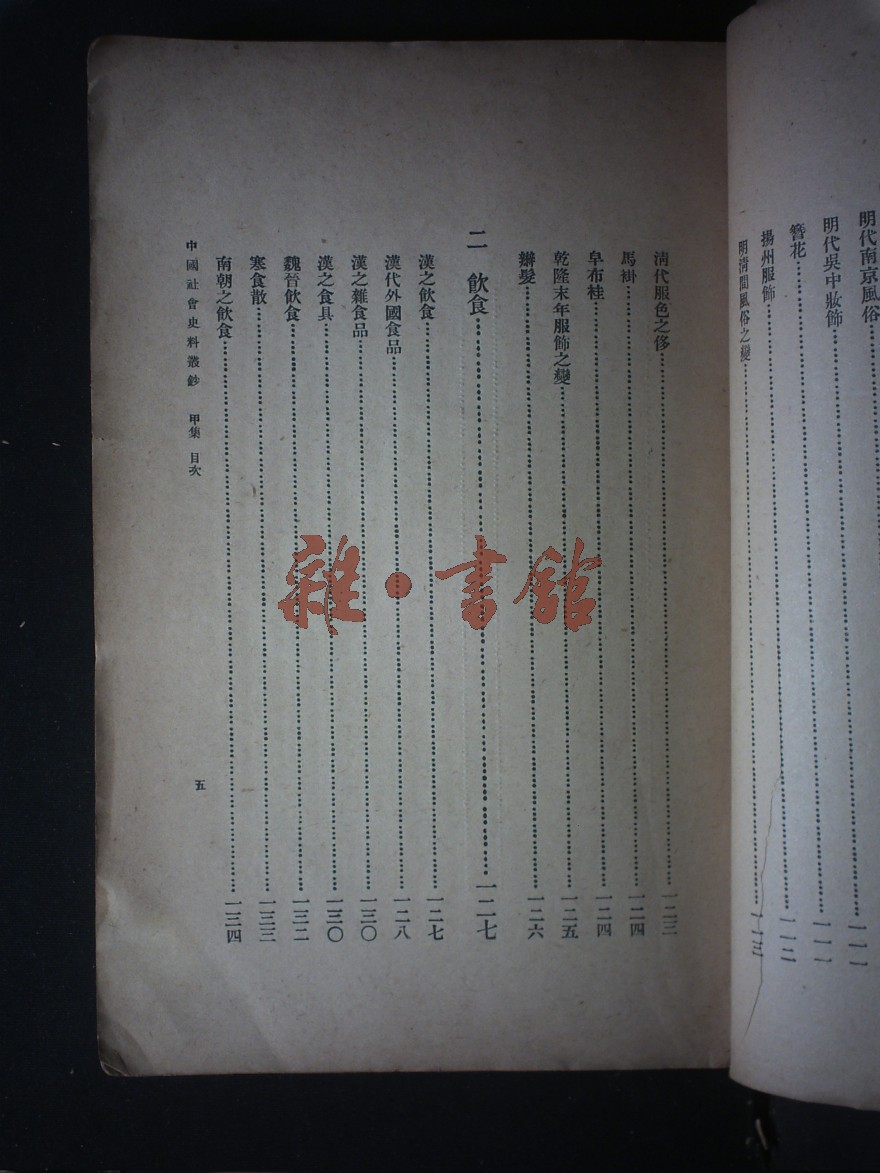 明代南京風俗……一一一
明代吳中妝飾……一一一
簪花……一一二
揚州服飾……一一二
明清間風俗之變……一一三
清代服色之侈……一二三
馬褂……一二四
皁布袿……一二四
乾隆末年服飾之變……一二五
辮髮……一二六
二 飲食……一二七
漢之飲食……一二七
漢代外國食品……一二八
漢之雜食品……一三〇
漢之食具……一三〇
魏晉飲食……一三二
寒食散……一三三
南朝之飲食……一三四
中國社會史料叢鈔 甲集 目次
五
雜·書館